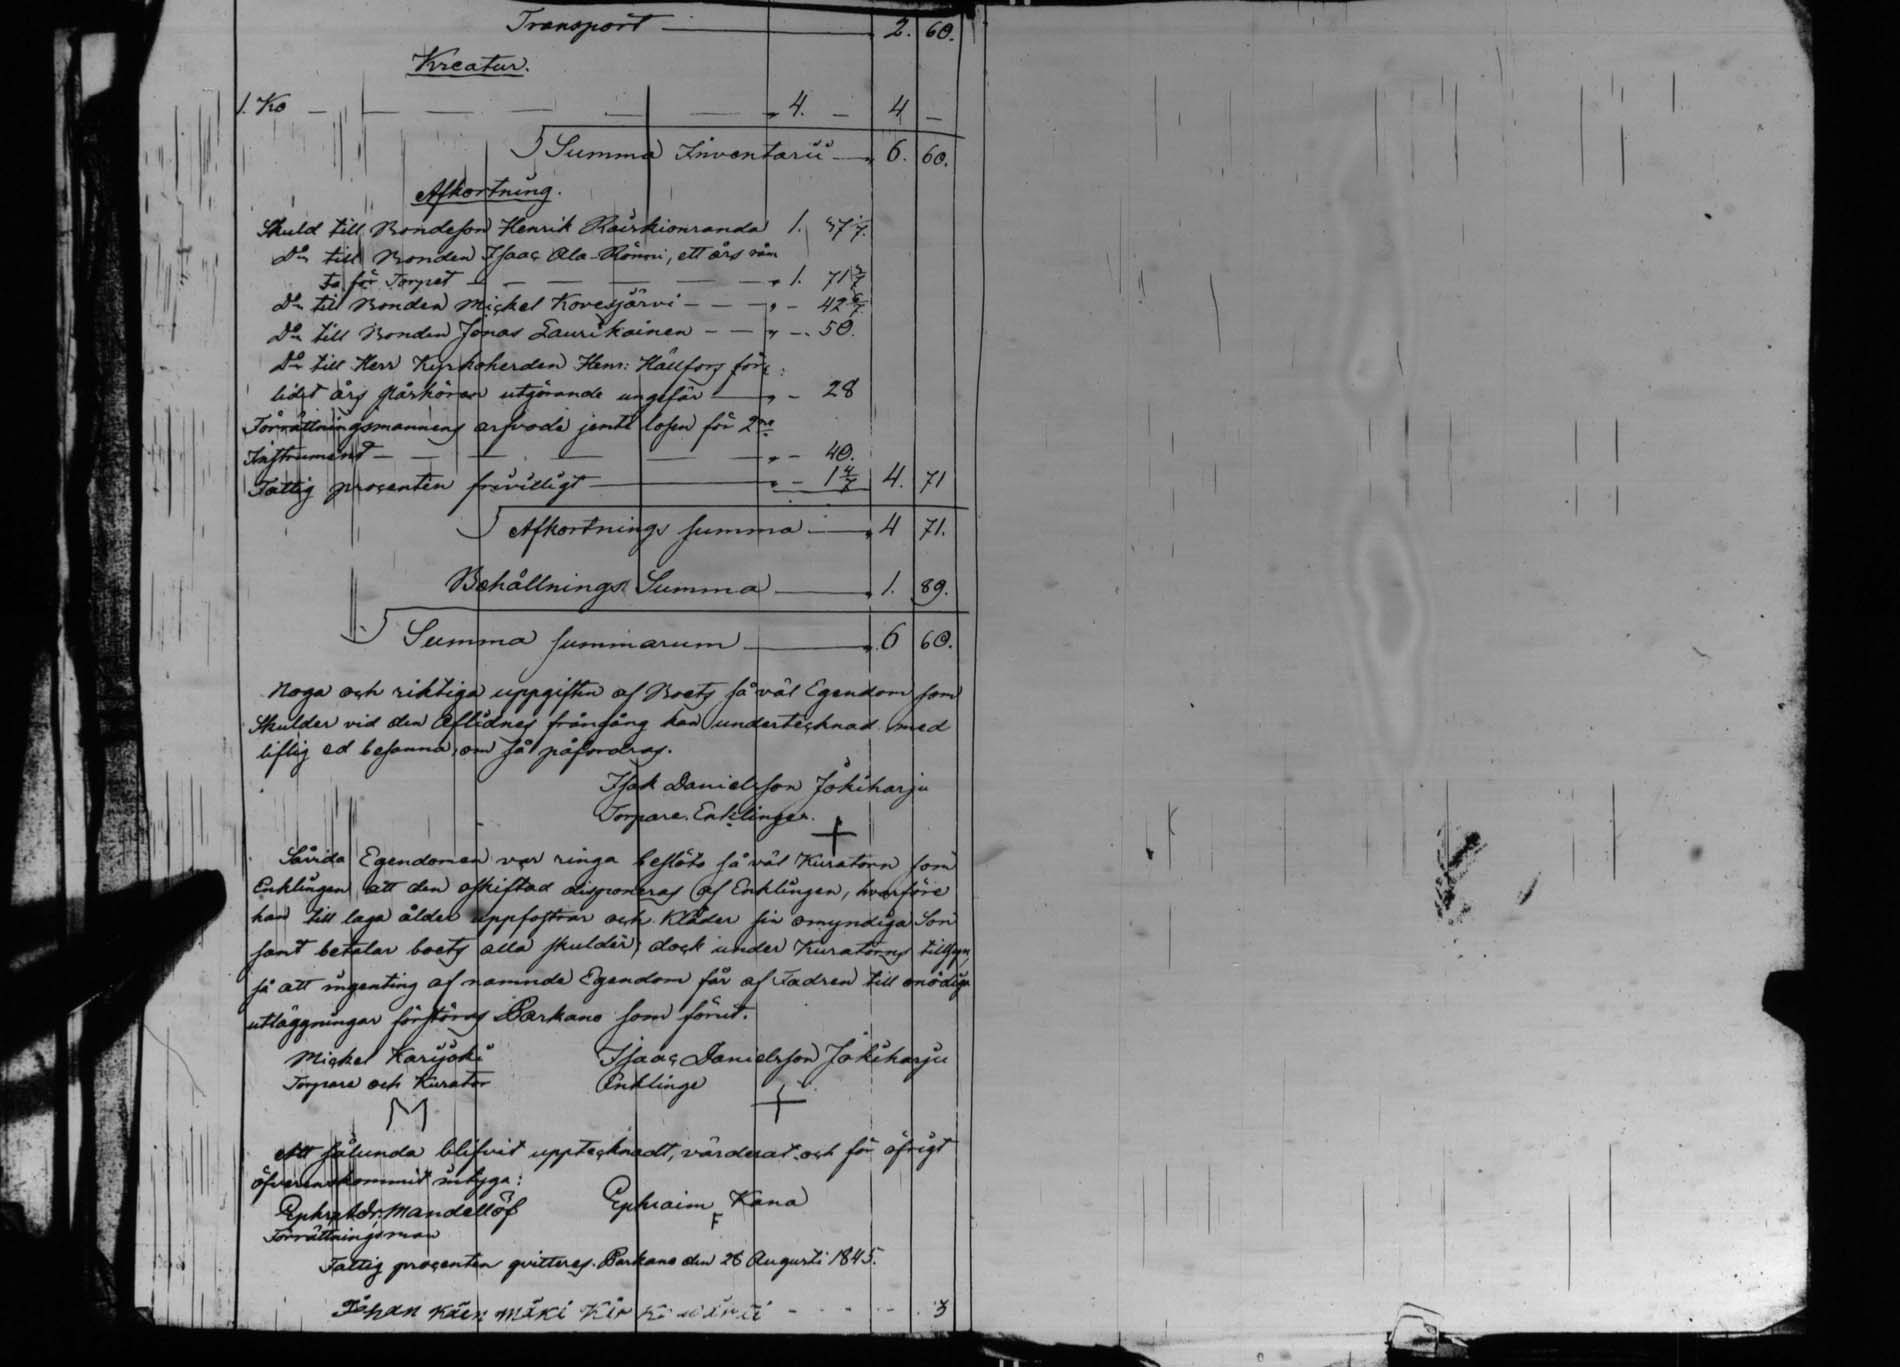 Transport — 2. 60.
Kreatur.
1. Ko — — — — — " 4. — 4 —
Summa Inventarii — " 6. 60.
Afkortning.
Skuld till Bondeson Henrik Räiskionranda 1. 37 1/7.
Do till Bonden Isaac Ala-Rönni, ett års rän
ta för Torpet — — — — — " 1. 71 3/7
Do till Bonden Mickel Kovesjärvi — — " – 42 6/7
Do till Bonden Jonas Laurikainen — — " – 50.
Do till Herr Kyrkoherden Henr: Hällfors för
lidet års utgörande ungefär — " – 28
Förrättningsmannens arfvode jemte lösen för 2ne
Instrument — — — — — " – 40.
Fattig procenten frivilligt — " – 1 4/7 4. 71
Afkortnings summa — " 4 71.
Behållnings Summa — " 1. 89.
Summa summarum — " 6 60.
Noga och riktiga uppgiften af Boets så väl Egendom som
Skulder vid den Aflidnes frångång kan undertecknad med
liflig ed besanna, om så påfordras.
Isak Danielsson Jokiharju
Torpare. Enklinger.
Såvida Egendomen var ringa beslöts så väl Kuratorn som
Enklingen att den oskiftad disponeras af Enklingen, hvarföre
han till laga ålder uppfostrar och kläder sin omyndiga Son
samt betalar boets alla skulder; dock under Kuratorns tillsyn,
så att ingenting af namnde Egendom får af Fadren till onödiga
utläggningar förstöras Parkano som förut.
Mickel Karijoki Isaac Danielsson Jokiharju
Torpare och Kurator Enklinge
M
Att sålunda blifvit uppteçknadt, värderat och för öfrigt
öfverenskommit intyga:
Mandellöf Ephraim Kana
Förrättningsman F
Fattig procenten qvitteras. Parkano den 28 Augusti 1845.
mäki